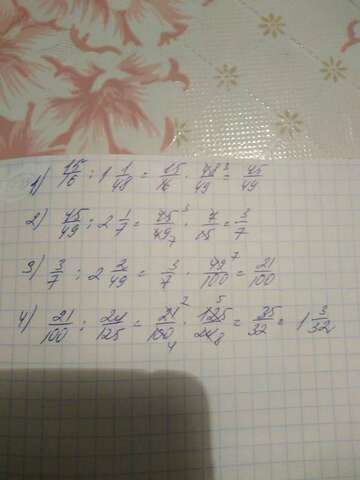 1) 15/16 : 1 1/48 = 15/16 · 48³/49 = 45/49
2) 45/49 : 2 1/7 = 45³/49₇ · 7/15 = 3/7
3) 3/7 : 2 2/49 = 3/7 · 49⁷/100 = 21/100
4) 21/100 : 24/125 = 21⁷/100₄ · 125⁵/24₈ = 35/32 = 1 3/32